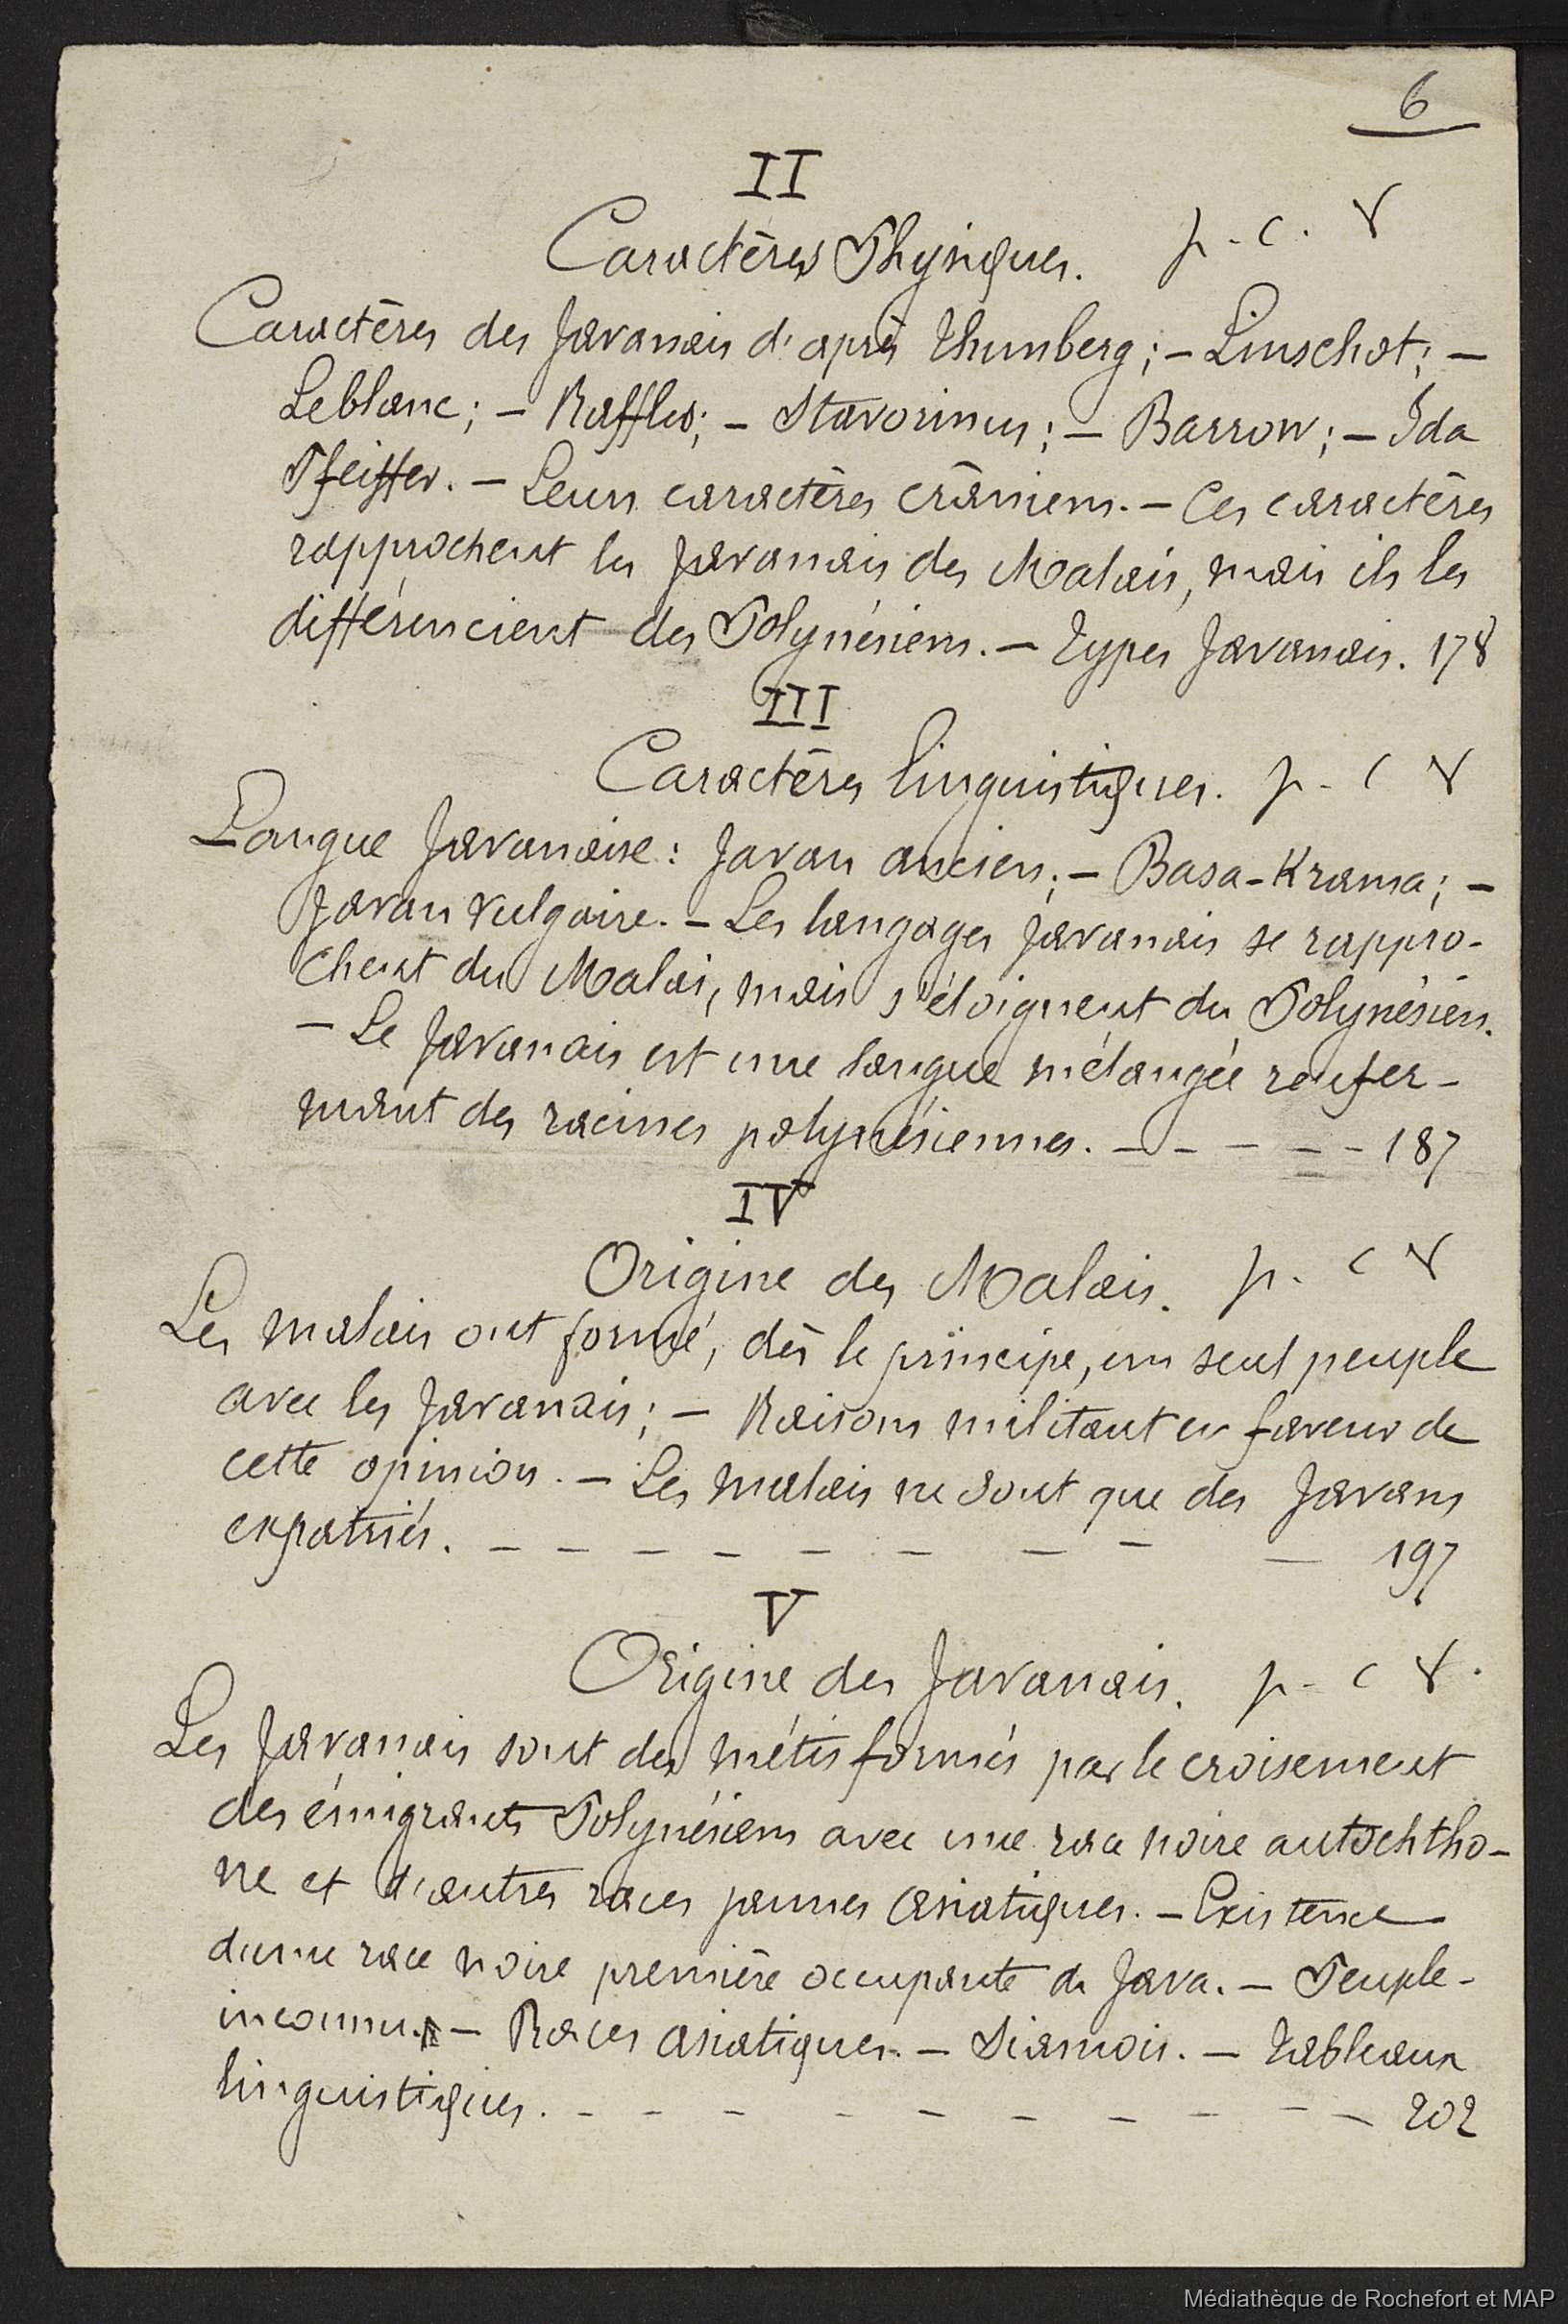 6
II
Caractères Physiques. p. c. r
Caractères des Javanais d'après Thunberg; — Linschot; —
Leblanc; — Raffles; — Stavorinus; — Barrow; — Ida
Pfeiffer. — Leurs caractères crâniens. — Ces caractères
rapprochent les Javanais des Malais, mais ils les
différencient des Polynésiens. — Types Javanais. 178
III
Caractères linguistiques. p. c r
Langue Javanaise: Javan ancien; — Basa-Krama; —
Javan vulgaire. — Les langages javanais se rappro-
chent du Malai, mais s'éloignent du Polynésien.
— Le Javanais est une langue mélangée renfer-
mant des racines polynésiennes. — - — - - 187
IV
Origine des Malais. p. c r
Les malais ont formé, dès le principe, un seul peuple
avec les Javanais; — Raisons militant en faveur de
cette opinion. — Les malais ne sont que des Javans
expatriés. — — — — — — — — — 197
V
Origine des Javanais. p. c r.
Les Javanais sont des métis formés par le croisement
des émigrants Polynésiens avec une race noire autochtho-
ne et d'autres races jaunes asiatiques. — Existence
d'une race noire première occupante de Java. — Peuple-
inconnu. — Races asiatiques. — Siamois. — Tableaux
linguistiques. - - - - - - - - - — 202
Médiathèque de Rochefort et MAP